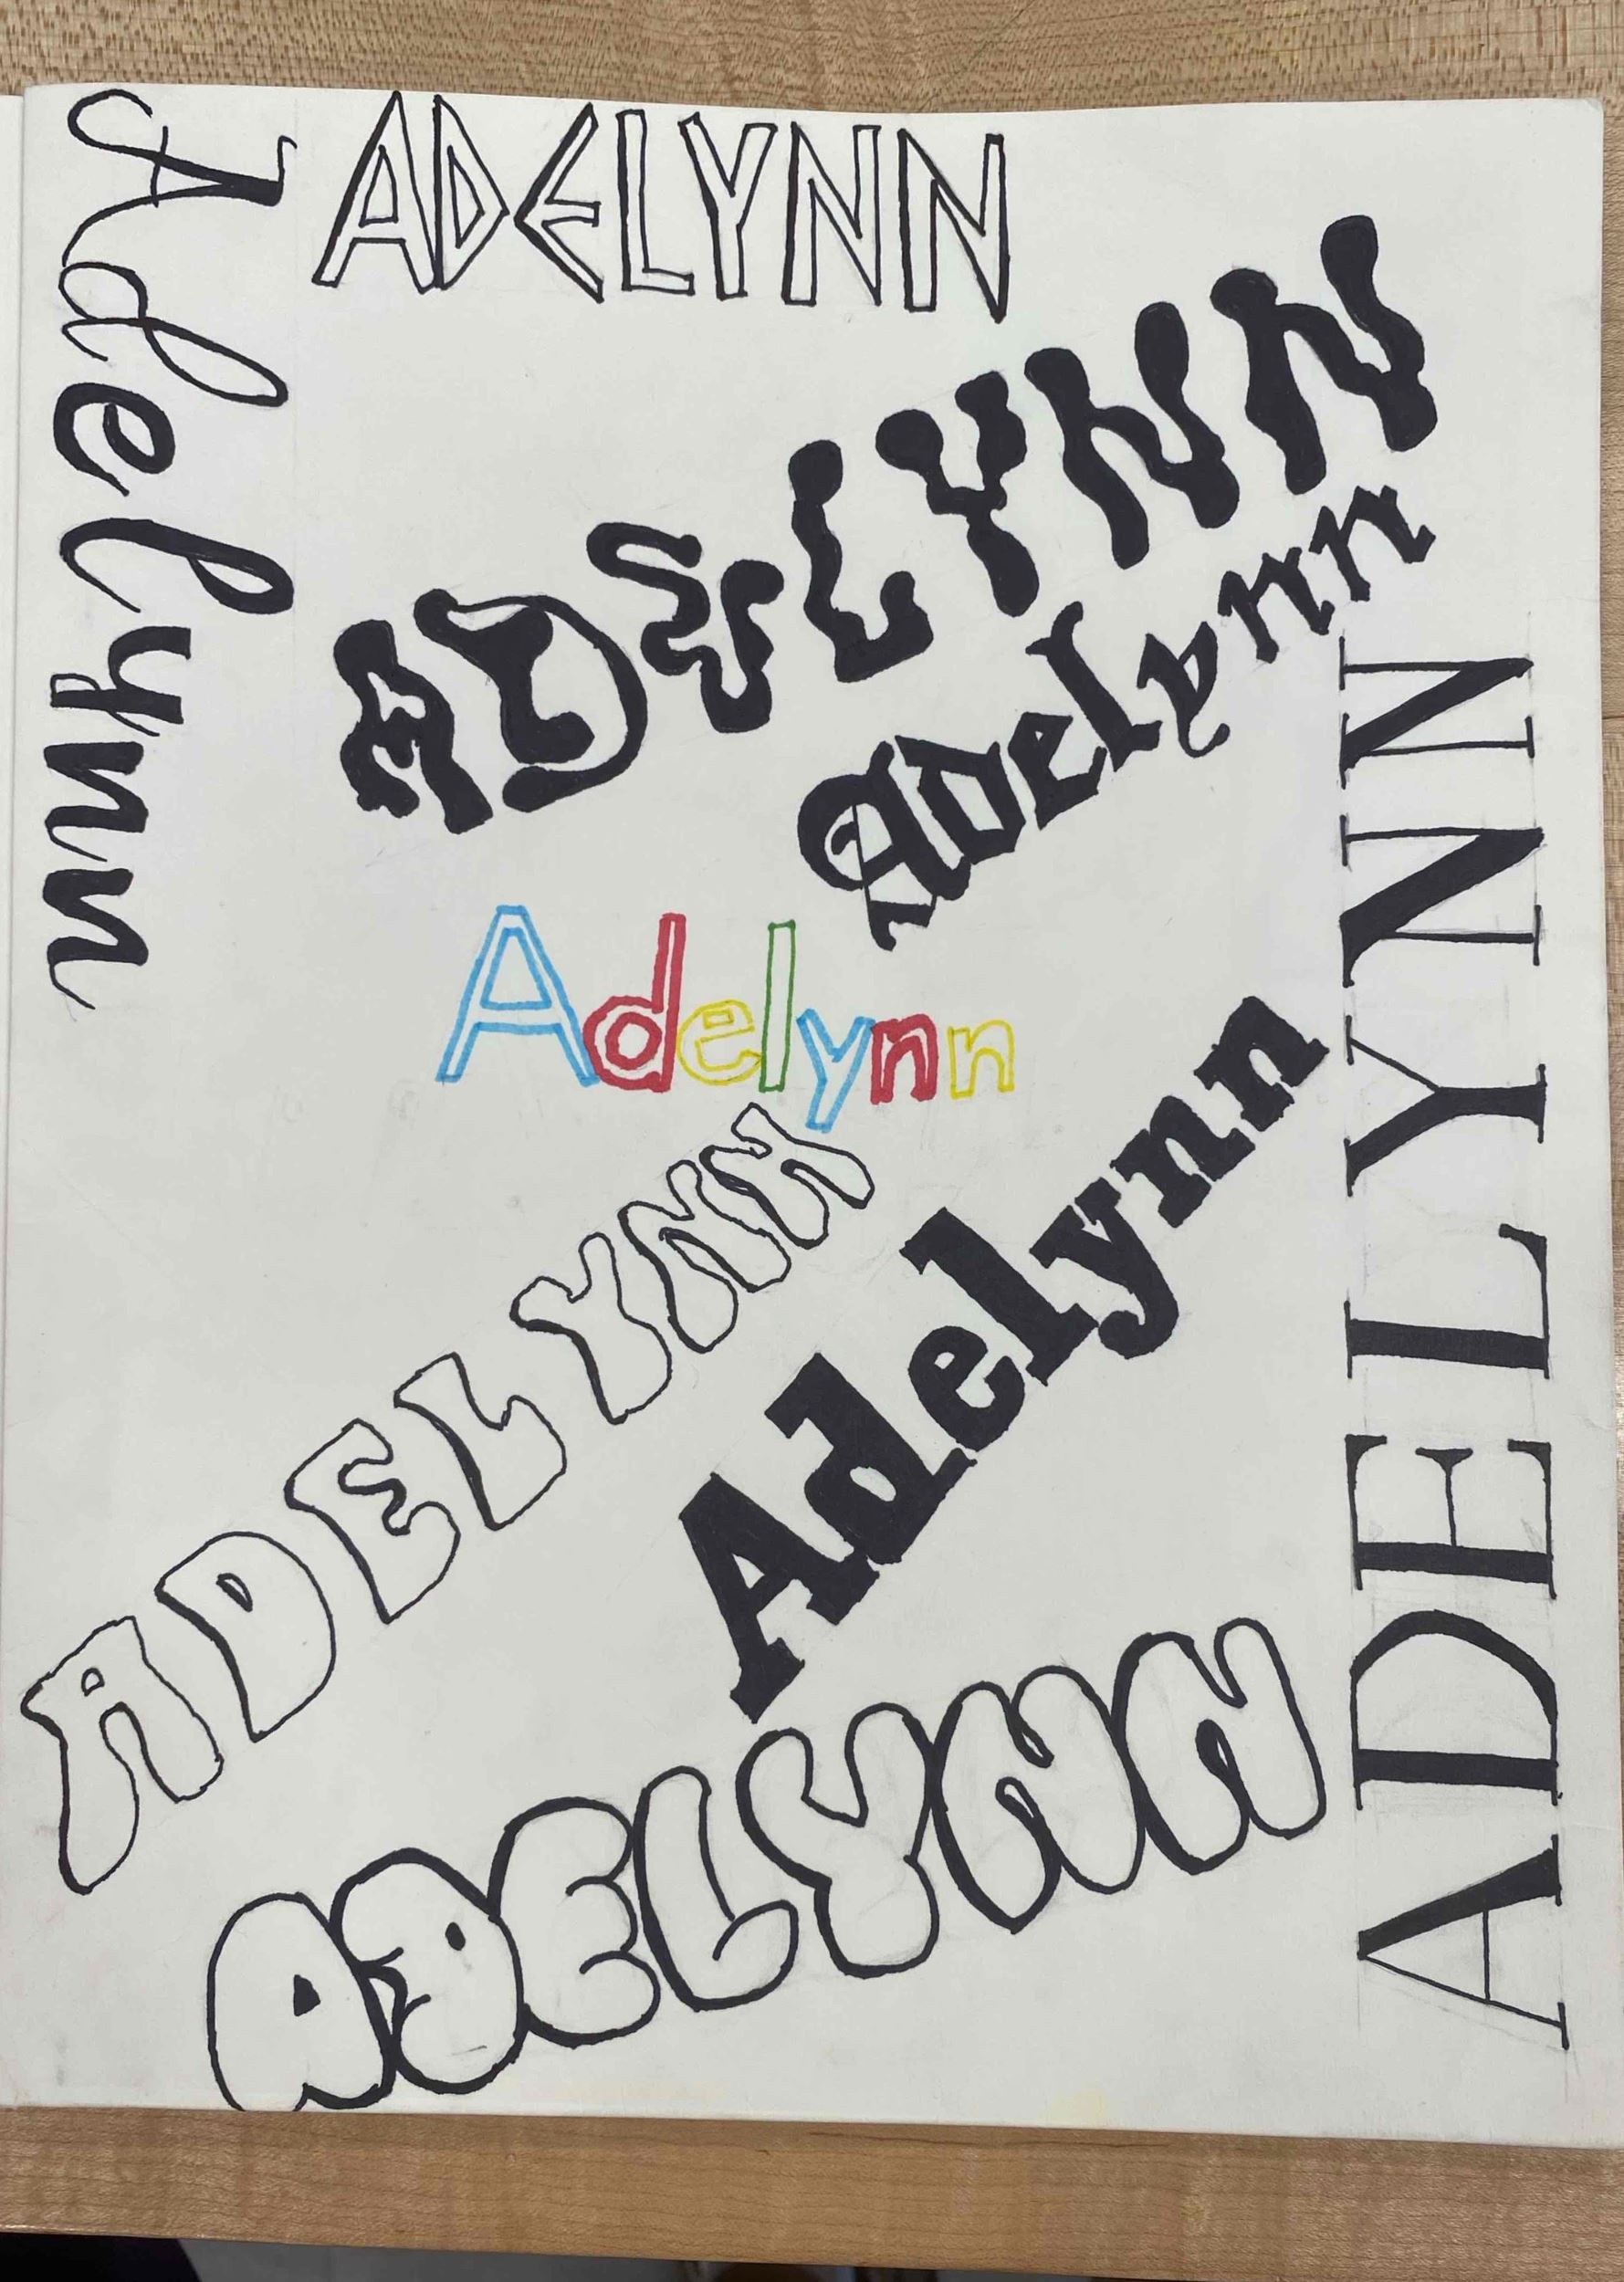 Adelynn
ADELYNN
ADELYNN
Adelynn
Adelynn
ADELYNN
Adelynn
ADELYNN
ADELYNN